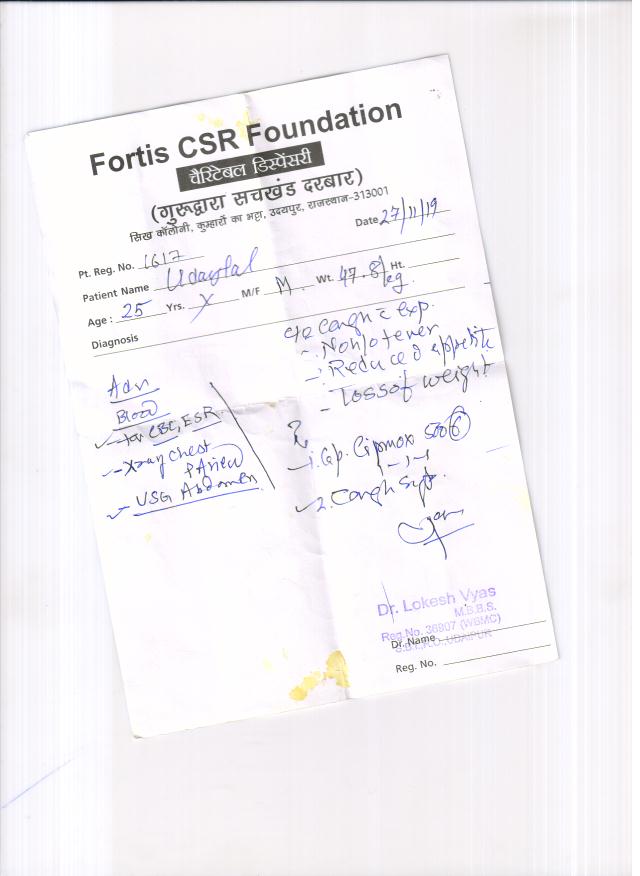 Fortis CSR Foundation
चैरिटेबल डिस्पेंसरी
(गुरूद्वारा सचखंड दरबार)
सिख कॉलोनी, कुम्हारों का भट्टा, उदयपुर, राजस्थान-313001
Date 27/11/19
Pt. Reg. No. 1617
Patient Name Udaylal
Age : 25 Yrs. M/F M. Wt. 47.8 kg Ht.
Diagnosis
c/o Cough c exp.
- Reduced appetite
- Loss of weight
Adv
Blood
for CBC, ESR
- Xray Chest
PA view
- USG Abdomen
1. Cap. Cipmox 500
1-1-1
2. Cough Syp.
Dr. Lokesh Vyas
M.B.B.S.
Reg.No. 36807 (WBMC)
Dr. Name
Reg. No.